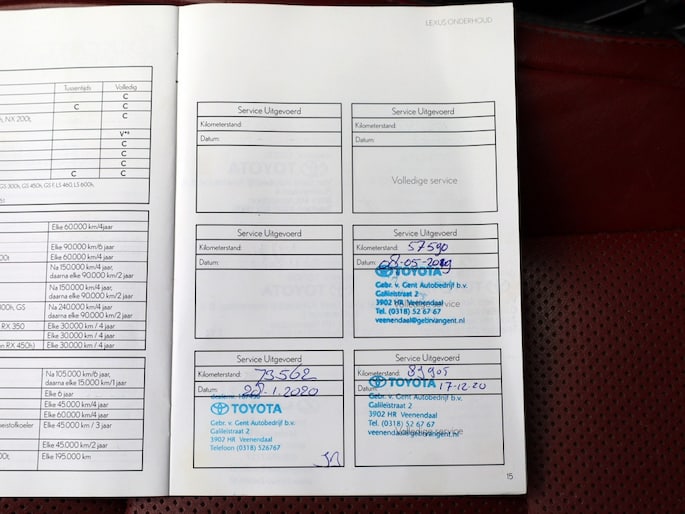 LEXUS ONDERHOUD
Tussentijds Volledig
C
C C
NX 200t C
V*³
C
C
C
C C
GS 300h, GS 450h, GS F, LS 460, LS 600h,
Elke 60.000 km/4 jaar
Elke 90.000 km/6 jaar
Elke 60.000 km/4 jaar
Na 150.000 km/4 jaar,
daarna elke 90.000 km/2 jaar
Na 150.000 km/4 jaar,
daarna elke 90.000 km/2 jaar
GS Na 240.000 km/4 jaar
daarna elke 90.000 km/2 jaar
RX 350 Elke 30.000 km / 4 jaar
Elke 30.000 km / 4 jaar
RX 450h) Elke 30.000 km / 4 jaar
Na 105.000 km/6 jaar,
daarna elke 15.000 km/1 jaar
Elke 6 jaar
Elke 45.000 km/4 jaar
Elke 60.000 km/4 jaar
Elke 45.000 km / 3 jaar
Elke 45.000 km/2 jaar
Elke 195.000 km
Service Uitgevoerd
Kilometerstand:
Datum:
Service Uitgevoerd
Kilometerstand:
Datum:
Volledige service
Service Uitgevoerd
Kilometerstand:
Datum:
Service Uitgevoerd
Kilometerstand: 57590
Datum: 08-05-2019
TOYOTA
Gebr. v. Gent Autobedrijf b.v.
Galileistraat 2
3902 HR Veenendaal
Tel. (0318) 52 67 67
veenendaal@gebrvangent.nl
service
Service Uitgevoerd
Kilometerstand: 73.562
Datum: 28-1-2020
TOYOTA
Gebr. v. Gent Autobedrijf b.v.
Galileistraat 2
3902 HR Veenendaal
Telefoon (0318) 526767
Service Uitgevoerd
Kilometerstand: 83905
Datum: 17-12-20
TOYOTA
Gebr. v. Gent Autobedrijf b.v.
Galileistraat 2
3902 HR Veenendaal
Tel. (0318) 52 67 67
veenendaal@gebrvangent.nl
Volledige service
15